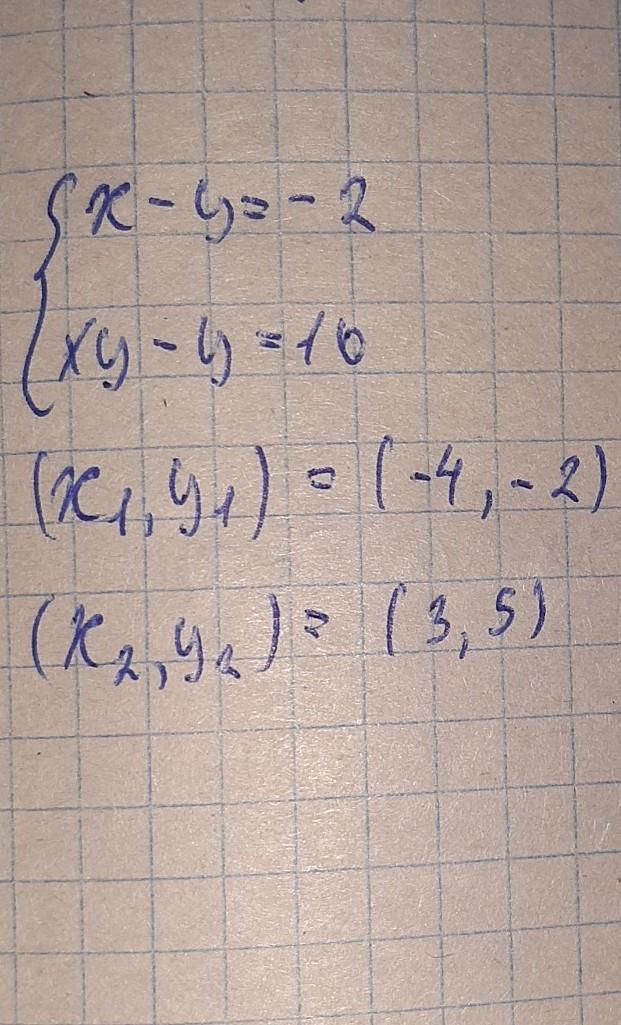 { x - y = - 2
xy - y = 10
(x₁, y₁) = (-4, -2)
(x₂, y₂) = (3, 5)